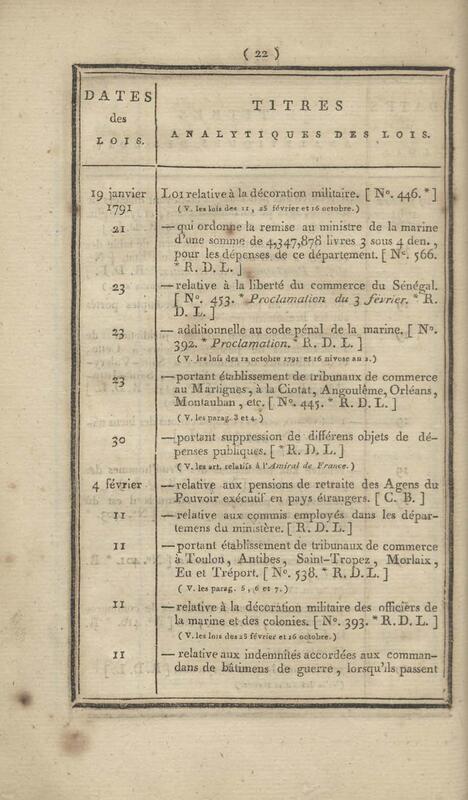 ( 22 )
DATES
des
LOIS.
TITRES
ANALYTIQUES DES LOIS.
19 janvier
1791
LOI relative à la décoration militaire. [ N°. 446. * ]
( V. les lois des 11, 25 février et 16 octobre. )
21
— qui ordonne la remise au ministre de la marine
d'une somme de 4,347,878 livres 3 sous 4 den.,
pour les dépenses de ce département. [ N°. 566.
* R. D. L. ]
23
— relative à la liberté du commerce du Sénégal.
[ N°. 453. * Proclamation du 3 février. * R.
D. L. ]
23
— additionnelle au code pénal de la marine. [ N°.
392. * Proclamation. * R. D. L. ]
( V. les lois des 12 octobre 1791 et 16 nivose an 2. )
23
— portant établissement de tribunaux de commerce
au Martigues, à la Ciotat, Angoulême, Orléans,
Montauban, etc. [ N°. 445. * R. D. L. ]
( V. les parag. 3 et 4. )
30
— portant suppression de différens objets de dé-
penses publiques. [ * R. D. L. ]
( V. les art. relatifs à l'Amiral de France. )
4 février
— relative aux pensions de retraite des Agens du
Pouvoir exécutif en pays étrangers. [ C. B. ]
11
— relative aux commis employés dans les dépar-
temens du ministère. [ R. D. L. ]
11
— portant établissement de tribunaux de commerce
à Toulon, Antibes, Saint-Tropez, Morlaix,
Eu et Tréport. [ N°. 538. * R. D. L. ]
( V. les parag. 5, 6 et 7. )
11
— relative à la décoration militaire des officiers de
la marine et des colonies. [ N°. 393. * R. D. L. ]
( V. les lois des 25 février et 16 octobre. )
11
— relative aux indemnités accordées aux comman-
dans de bâtimens de guerre, lorsqu'ils passent